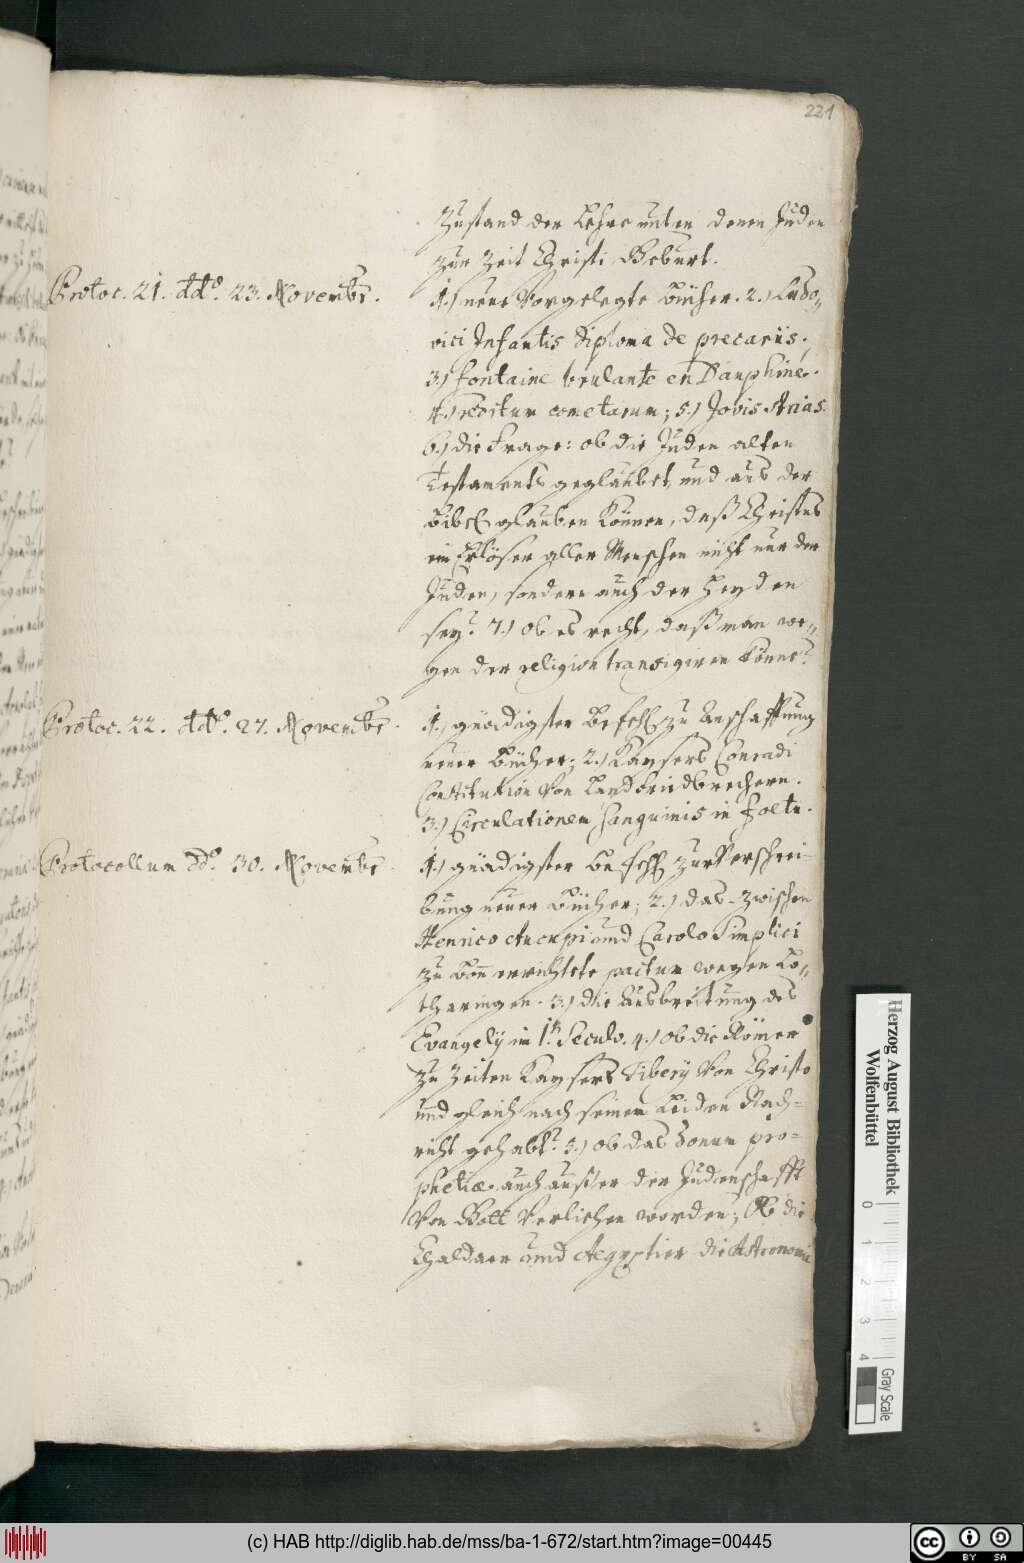 221
Zustand der Lehre unter denen Juden
zur Zeit Christi Geburt.
Protoc. 21. dd°. 23. Novembr.
1.) neue Vorgelegte Bücher. 2.) Ludo„
vici Infantis diploma de precariis.
3.) fontaine brulante en Dauphiné.
4.) cometarum; 5.) Jovis Arias.
6.) die Frage: ob die Juden alten
Testaments geglaubet, und aus der
Bibel glauben können, daß Christus
ein Erlöser aller Menschen nicht nur der
Juden, sondern auch der Heyden
sey? 7.) Ob es recht, daß man we„
gen der religion transigiren könne?
Protoc. 22. dd°. 27. Novembr.
1.) gnädigster Befehl zu Anschaffung
neuer Bücher; 2.) Kaysers Conradi
Constitution von Landfriedbrechern.
3.) Circulationem sanguinis in foetu.
Protocollum dd°. 30. Novembr.
1.) gnädigster Befehl zur Verschrei-
bung neuer Bücher; 2.) das zwischen
Henrico Aucupi und Carolo Simplici
zu Bonn errichtete pactum wegen Lo„
tharingen. 3.) die Ausbreitung des
Evangelÿ im 1.n Seculo. 4.) ob die Römer
zu Zeiten Kaysers Tiberÿ von Christo
und gleich nach seinem Leiden Nach-
richt gehabt? 5.) ob das donum pro-
phetiæ auch außer der Judenschafft
von Gott verliehen worden; Ob die
Chaldaer und Aegyptier die Astronomie
Herzog August Bibliothek
Wolfenbüttel
0 1 2 3 4
Gray Scale
(c) HAB http://diglib.hab.de/mss/ba-1-672/start.htm?image=00445
cc BY SA